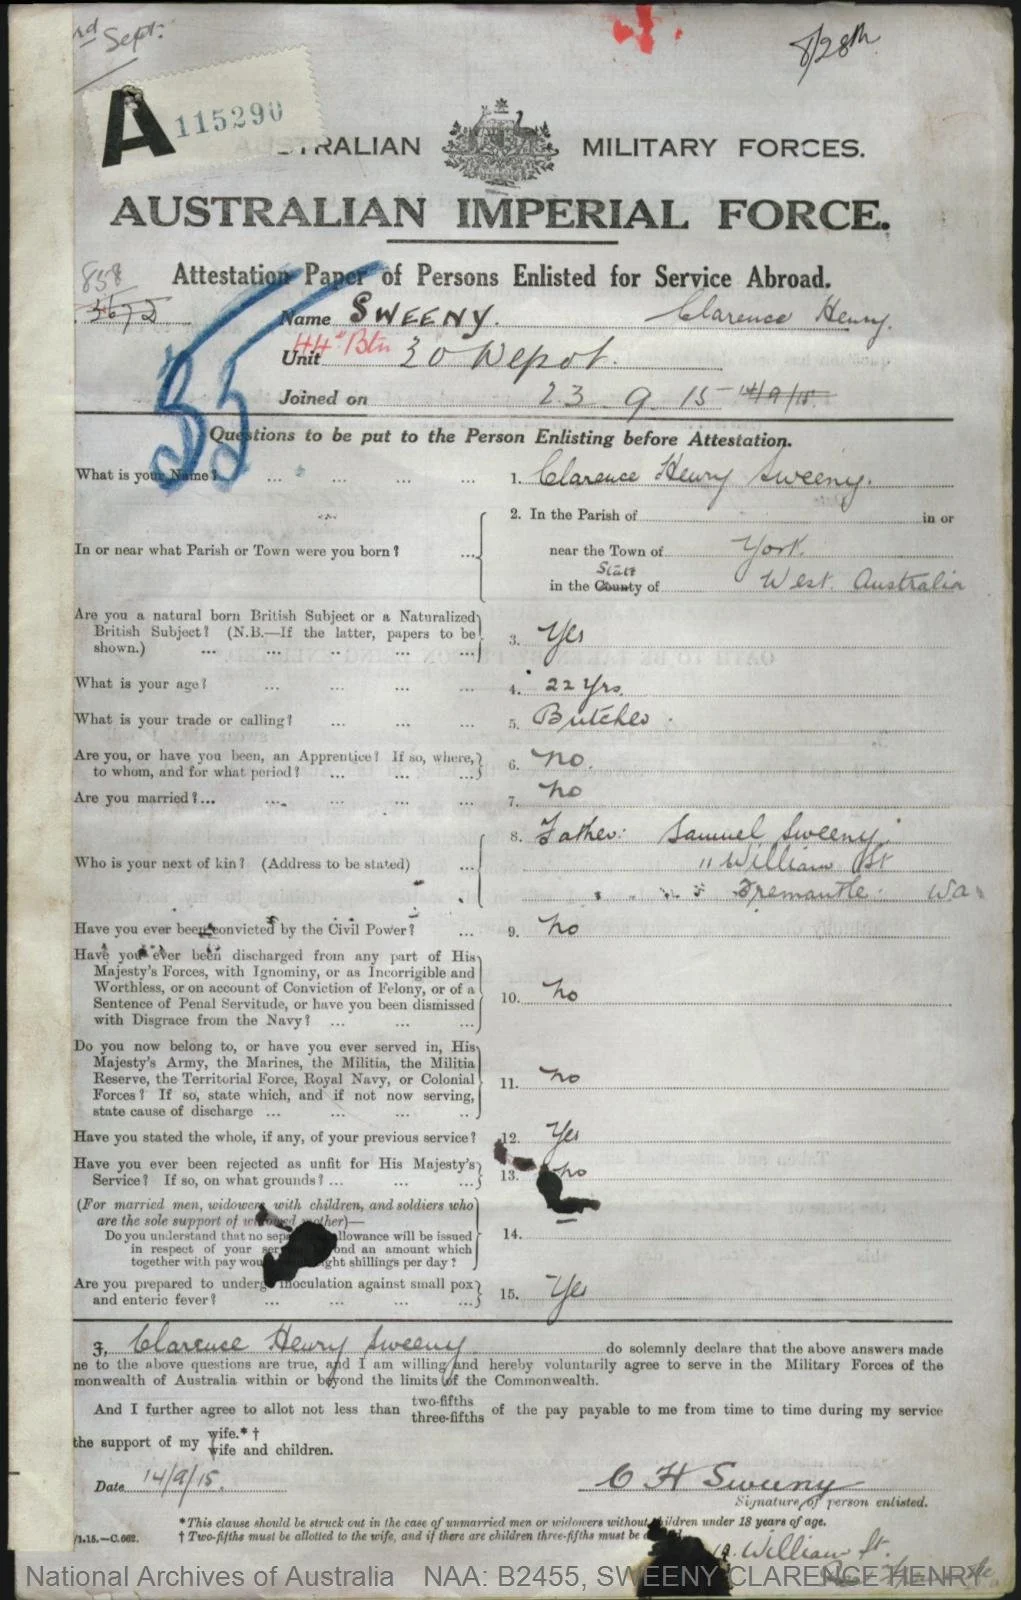 rd Sept:
8/28th
A 115290
AUSTRALIAN MILITARY FORCES.
AUSTRALIAN IMPERIAL FORCE.
Attestation Paper of Persons Enlisted for Service Abroad.
858
3672
Name SWEENY. Clarence Henry.
44th Btn
Unit 30 Depot.
Joined on 23 9 15 14/9/15
35
Questions to be put to the Person Enlisting before Attestation.
What is your Name? ... ... ... ... 1. Clarence Henry Sweeny.
2. In the Parish of in or
In or near what Parish or Town were you born? ... near the Town of York.
State
in the County of West. Australia
Are you a natural born British Subject or a Naturalized
British Subject? (N.B.—If the latter, papers to be
shown.) ... ... ... ... ... 3. Yes
What is your age? ... ... ... ... 4. 22 Yrs.
What is your trade or calling? ... ... ... 5. Butcher.
Are you, or have you been, an Apprentice? If so, where,
to whom, and for what period? ... ... ... 6. No.
Are you married?... ... ... ... 7. No
8. Father: Samuel Sweeny
Who is your next of kin? (Address to be stated) ... 11 William St
Fremantle. WA.
Have you ever been convicted by the Civil Power? ... 9. No
Have you ever been discharged from any part of His
Majesty's Forces, with Ignominy, or as Incorrigible and
Worthless, or on account of Conviction of Felony, or of a
Sentence of Penal Servitude, or have you been dismissed
with Disgrace from the Navy? ... ... ... 10. No
Do you now belong to, or have you ever served in, His
Majesty's Army, the Marines, the Militia, the Militia
Reserve, the Territorial Force, Royal Navy, or Colonial
Forces? If so, state which, and if not now serving,
state cause of discharge ... ... ... .. 11. No
Have you stated the whole, if any, of your previous service? 12. Yes
Have you ever been rejected as unfit for His Majesty's
Service? If so, on what grounds? ... ... ... 13. No
(For married men, widowers with children, and soldiers who
are the sole support of widowed mother)—
Do you understand that no sep allowance will be issued
in respect of your ser ond an amount which
together with pay wou ght shillings per day? 14. —
Are you prepared to undergo inoculation against small pox
and enteric fever? ... ... ... ... 15. Yes
I, Clarence Henry Sweeny. do solemnly declare that the above answers made
me to the above questions are true, and I am willing and hereby voluntarily agree to serve in the Military Forces of the
monwealth of Australia within or beyond the limits of the Commonwealth.
And I further agree to allot not less than two-fifths three-fifths of the pay payable to me from time to time during my service
the support of my wife.*† wife and children.
Date 14/9/15. C H Sweeny
Signature of person enlisted.
*This clause should be struck out in the case of unmarried men or widowers without children under 18 years of age.
/1.15.—C.662. † Two-fifths must be allotted to the wife, and if there are children three-fifths must be
William St.
National Archives of Australia NAA: B2455, SWEENY CLARENCE HENRY